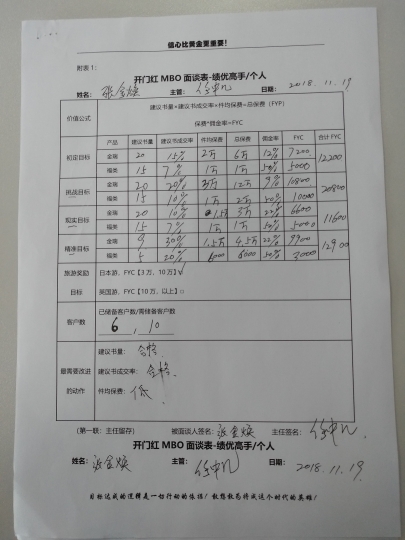 信心比黄金更重要！
附表1：
开门红 MBO 面谈表-绩优高手/个人
姓名： 张金焕 主管： 日期： 2018.11.19
价值公式 建议书量×建议书成交率×件均保费=总保费（FYP）
保费*佣金率=FYC
产品 建议书量 建议书成交率 件均保费 总保费 佣金率 FYC 合计FYC
初定目标 金瑞 20 15% 2万 6万 12% 7200 12200
福类 15 7% 1万 1万 50% 5000
挑战目标 金瑞 20 20% 3万 12万 9% 10800 20800
福类 15 10% 1万 2万 50% 10000
现实目标 金瑞 20 10% 1.5万 3万 22% 6600 11600
福类 15 7% 1万 1万 50% 5000
精准目标 金瑞 9 30% 1.5万 4.5万 22% 9900 12900
福类 5 20% 6000 6000 50% 3000
旅游奖励 日本游，FYC【3万，10万】√
目标 英国游，FYC【10万，以上】□
客户数 已储备客户数/需储备客户数
6 , 10
最需要改进的动作 建议书量： 合格
建议书成交率： 合格
件均保费： 低
（第一联：主任留存） 被面谈人签名： 张金焕 主任签名：
开门红 MBO 面谈表-绩优高手/个人
姓名： 张金焕 主管： 日期： 2018.11.19
目标达成的选择是一切行动的依据！敢想敢为将成这个时代的英雄！